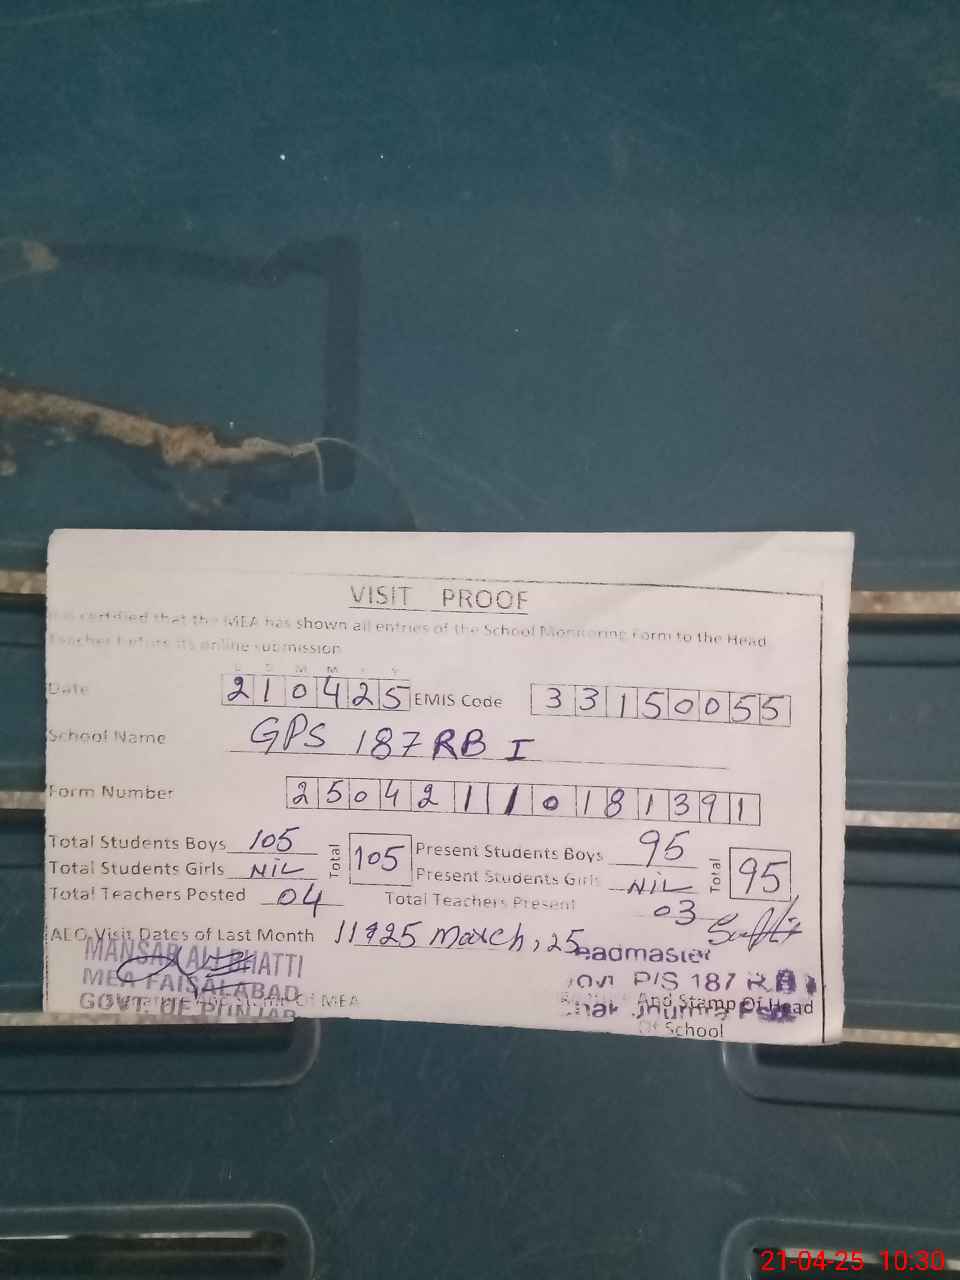 VISIT PROOF
certified that the MEA has shown all entries of the School Monitoring Form to the Head
Teacher before its online submission
D D M M Y Y
Date 210425 EMIS Code 33150055
School Name GPS 187 RB I
Form Number 25042110181391
Total Students Boys 105 Total 105 Present Students Boys 95 Total 95
Total Students Girls NIL Present Students Girls NIL
Total Teachers Posted 04 Total Teachers Present 03
AEO Visit Dates of Last Month March, 25
MANSAB ALI BHATTI
MEA FAISALABAD
GOVT. OF PUNJAB
Of MEA
eadmaster
P/S 187 R.B
And Stamp Of Head
Of School
21-04-25 10:30